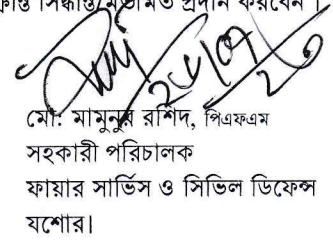 সিদ্ধান্ত/মতামত প্রদান করবেন।
২৫/০৭/২৩
মো: মামুনুর রশিদ, পিএফএম
সহকারী পরিচালক
ফায়ার সার্ভিস ও সিভিল ডিফেন্স
যশোর।